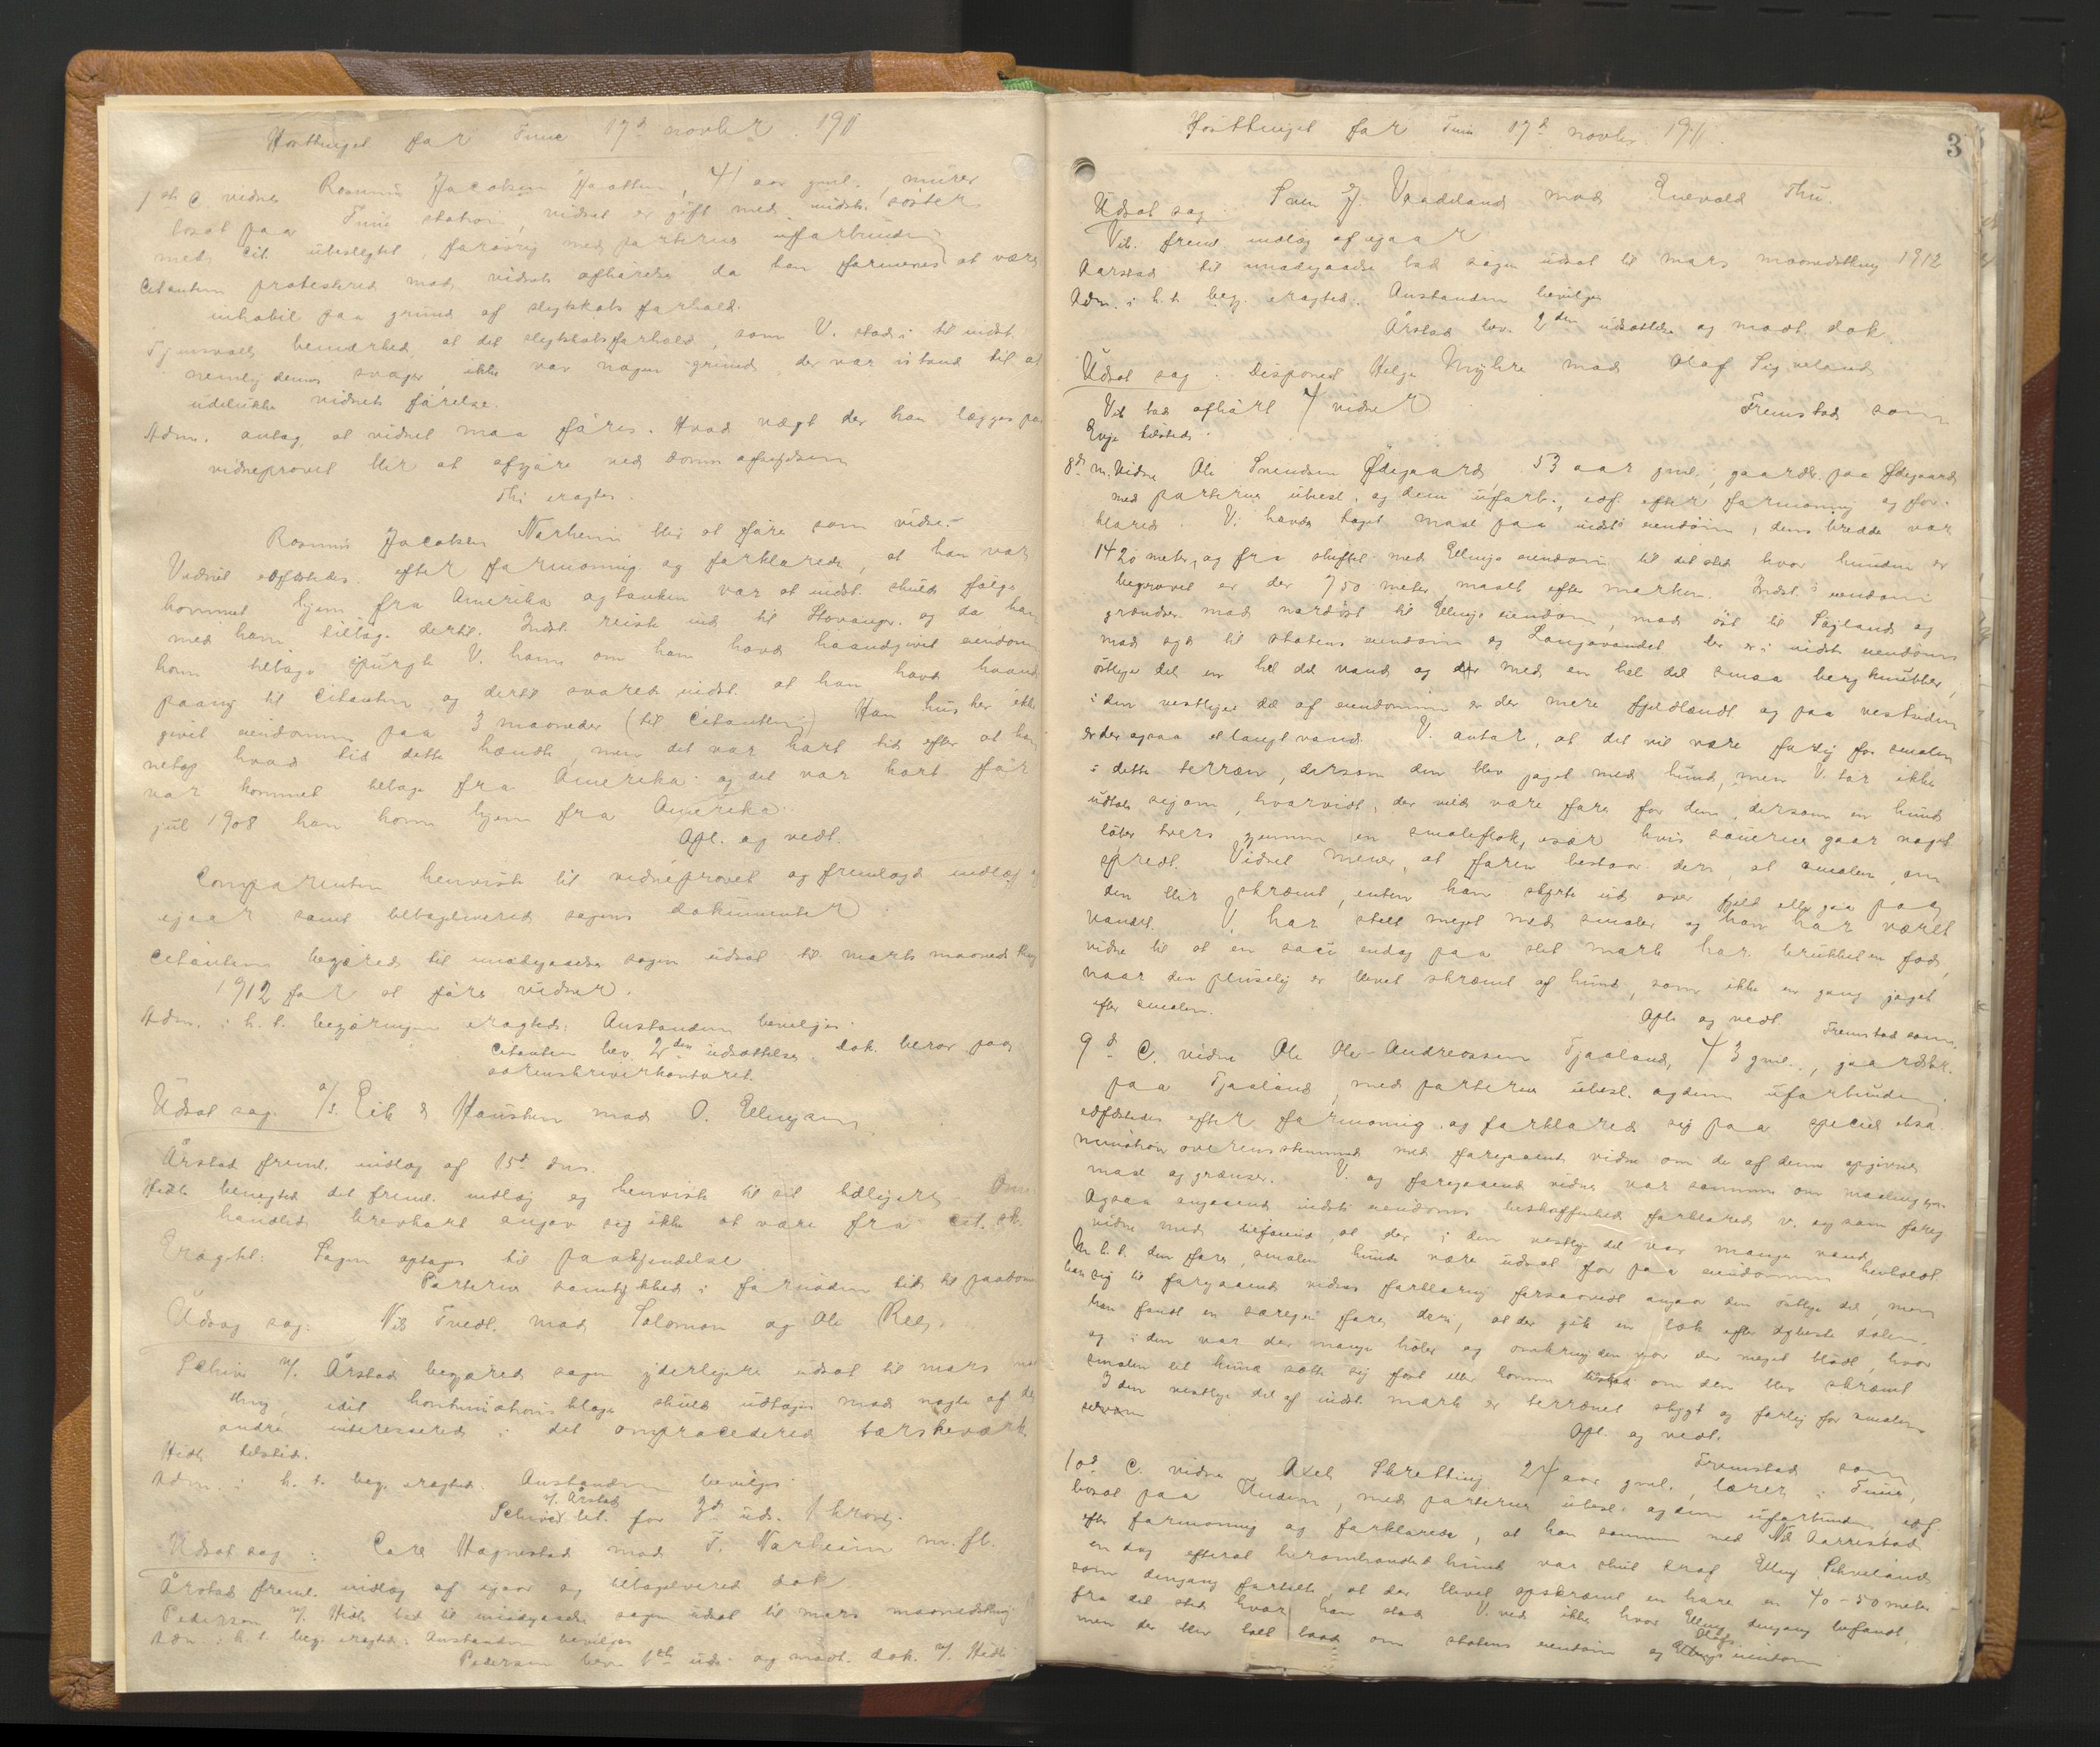 Høsttinget for Time 17d novbr. 1911
1ste C. vidne Rasmus Jacobsen, 41 aar gml., murer
bosat paa Time station, vidnet er gift med indst. søster
med cit. ubeslegtet, forøvrig med parterne uforbunden
Citanten protesterte mod vidnets afhørelse da han formenes at være
inhabil paa grund af slegtskabsforhold.
bemærket, at det slegtskabsforhold, som V. stod i til indst.
nemlig dennes svoger, ikke var nogen grund, der var istand til at
udelukke vidnets førelse.
Adm. antog, at vidnet maa føres. Hvad vægt der kan lægges paa
vidneprovet blir at afgjøre ved doms afsigelsen
Thi eragtes:
Rasmus Jacobsen Nærheim blir at føre som vidne.
Vidnet edfæstedes efter formaning og forklarede, at han var
kommet hjem fra Amerika og tanken var at indst. skulde følge
med ham tilbage dertil. Indst. reiste ind til Stavanger og da han
kom tilbage spurgte V. ham om han havde haandgivet eiendommen
til Citanten og dertil svarede indst. at han havde haand
givet eiendommen paa 3 maaneder (til Citanten) Han husker ikke
netop hvad tid dette hændte, men det var kort tid efter at han
var kommet tilbage fra Amerika og det var kort før
jul 1908 han kom hjem fra Amerika.
Opl. og vedt.
Comparenten henviste til vidneprovet og fremlagde indlæg af
igaar samt tilbageleverede sagens dokumenter
Citanten begjærede til imødegaaelse sagen udsat til marts maanedsting
1912 for at føre vidner.
Adm. i h. t. begjæringen eragtede: Anstanden bevilges.
Citanten bev. 2den udsættelse. Dok. beror paa
sorenskriverkontoret.
Udsat sag: A/S. Eik & Hausken mod O. Ellingsen
Årstad freml. indlæg af 15d ds.
Hidle benegtet det freml. indlæg og henviste til sit tidligere.
brevkort angav sig ikke at være fra cit.
Eragtet: Sagen optages til paakjendelse
Parterne samtykkede i fornøden tid til paadømmelse
Udsat sag: Nils Tvedt mod Salomon og Ole
v/ Årstad begjærede sagen yderligere udsat til mars
ting, idet kontinuationsklage skulde udtages mod nogle af de
andre interesserede i det omprocederede tærskeværk
Hidle tilstede.
Adm. i h. t. beg. eragtede: Anstanden bevilges
v/ Årstad
bet. for 3d uds. 1 krone.
Udsat sag: Carl Hognestad mod T. Nærheim m. fl.
Årstad freml. indlæg af igaar og tilbageleverede dok.
Pedersen v/ Hidle bad til imødegaaelse sagen udsat til mars maanedsting
Adm. i h. t. beg. eragtede: Anstanden bevilges
Pedersen bev. 1ste uds. og modt. dok. v/ Hidle
Høsttinget for Time 17d novbr. 1911.
3
Udsat sag: Sven J. Vaadeland mod Enevald Thu.
Vik freml. indlæg af igaar
Aarstad til imødegaaelse bad sagen udsat til mars maanedsting 1912
Adm. i h. t. beg. eragtede: Anstanden bevilges
Årstad bev. 2den udsættelse og modt. dok.
Udsat sag: Disponent Helge Myhre mod Olaf Sigveland
Vik bad afhørt 4 vidner
Evje tilstede.
Fremstod som
8de m. Vidne Ole Svendsen Ødegaard, 53 aar gml., gaardbr. paa Ødegaard
med parterne ubesl. og dem uforb., edf. efter formaning og for-
klarede: Vi havde taget maal paa indst's eiendom, dens bredde var
1420 meter, og fra skiftet med Ellings eiendom til det sted hvor hunden er
begravet er der 750 meter, maalt efter marken. Indst.'s eiendom
grændser mod nordøst til Ellings eiendom, mod øst til Søyland og
mod syd til statens eiendom og Langavandet. Der er i indst. eiendoms
østlige del en hel del vand og der med en hel del smaa bergknubber,
i den vestlige del af eiendommen er der mere fjeldlændt og paa vestsiden
er der ogsaa et langt vand. V. antar, at det vil være farlig for smalen
i dette terræn, dersom den blev jaget med hund, men V. tør ikke
udtale sig om, hvorvidt der vilde være fare for den, dersom en hund
løber tvers gjennem en smaleflok, især hvis sauerne gaar noget
spredt. Vidnet mener, at faren bestaar deri, at smalen, om
den blir skræmt, enten kan styrte ud over fjeld eller gaa paa
vandet. V. har stelt meget med smaler og han har været
vidne til at en sau endog paa slet mark har brukket en fod,
naar den pludselig er blevet skræmt af hund, som ikke en gang jaget
efter smalen.
Opl. og vedt.
Fremstod som
9d C. vidne Ole Ole-Andreassen Tjaaland, 43 gml., gaardbr.
paa Tjaaland, med parterne ubesl. og dem uforbunden.
edfæstedes efter formaning og forklarede sig paa speciel eksa-
mination overensstemmende med foregaaende vidne om de af denne opgivne
maal og grænser. V. og foregaaende vidne var sammen om maalingen.
Ogsaa angaaende indst. eiendoms beskaffenhed forklarede v. sig som foreg.
vidne med tilføiende, at der i den vestlige del var mange vand
M. h. t. den fare, smalen kunde være udsat for paa eiendommen henholdt
han sig til foregaaende vidnes forklaring forsaavidt angaar den østlige del, men
han fandt en særegen fare deri, at der gik en bæk efter dybeste dalen.
og i den var der mange høler og omkring den var der meget blødt, hvor
smalen let kunde sætte sig fast eller komme om den blev skræmt
I den vestlige del af indst. mark er terrænet stygt og farlig for smalen
Opl. og vedt.
Fremstod som
10d C. vidne Axel Skretting 24 aar gml., lærer i Time,
bosat paa Undem, med parterne ubesl. og dem uforbunden, edf.
efter formaning og forklarede, at han sammen med Nils Aarrestad
en dag efterat heromhandlet hund var skudt traf Elling
som dengang fortalte, at der blevet opskræmt en hare en 40-50 meter
fra det sted hvor han stod. V. ved ikke hvor Elling dengang befandt,
men der blev talt baade om statens eiendom og Olafs eiendom